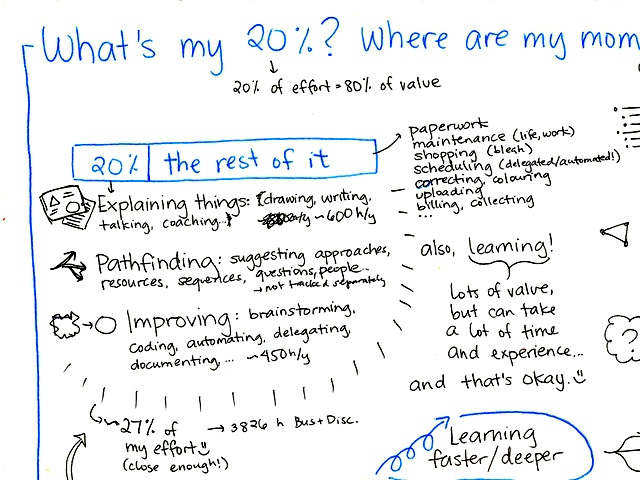 What's my 20%? Where are my mom
20% of effort = 80% of value
20% the rest of it
paperwork
maintenance (life, work)
shopping (bleah)
scheduling (delegated/automated!)
correcting, colouring
uploading
billing, collecting
...
Explaining things: (drawing, writing,
talking, coaching...)
~600 h/y
Pathfinding: suggesting approaches,
resources, sequences, questions, people...
→ not tracked separately
Improving: brainstorming,
coding, automating, delegating,
documenting, ... ~450h/y
also, learning!
lots of value,
but can take
a lot of time
and experience...
and that's okay.
~27% of
my effort
(close enough!)
→ 3826 h Bus+Disc.
Learning
faster/deeper
?